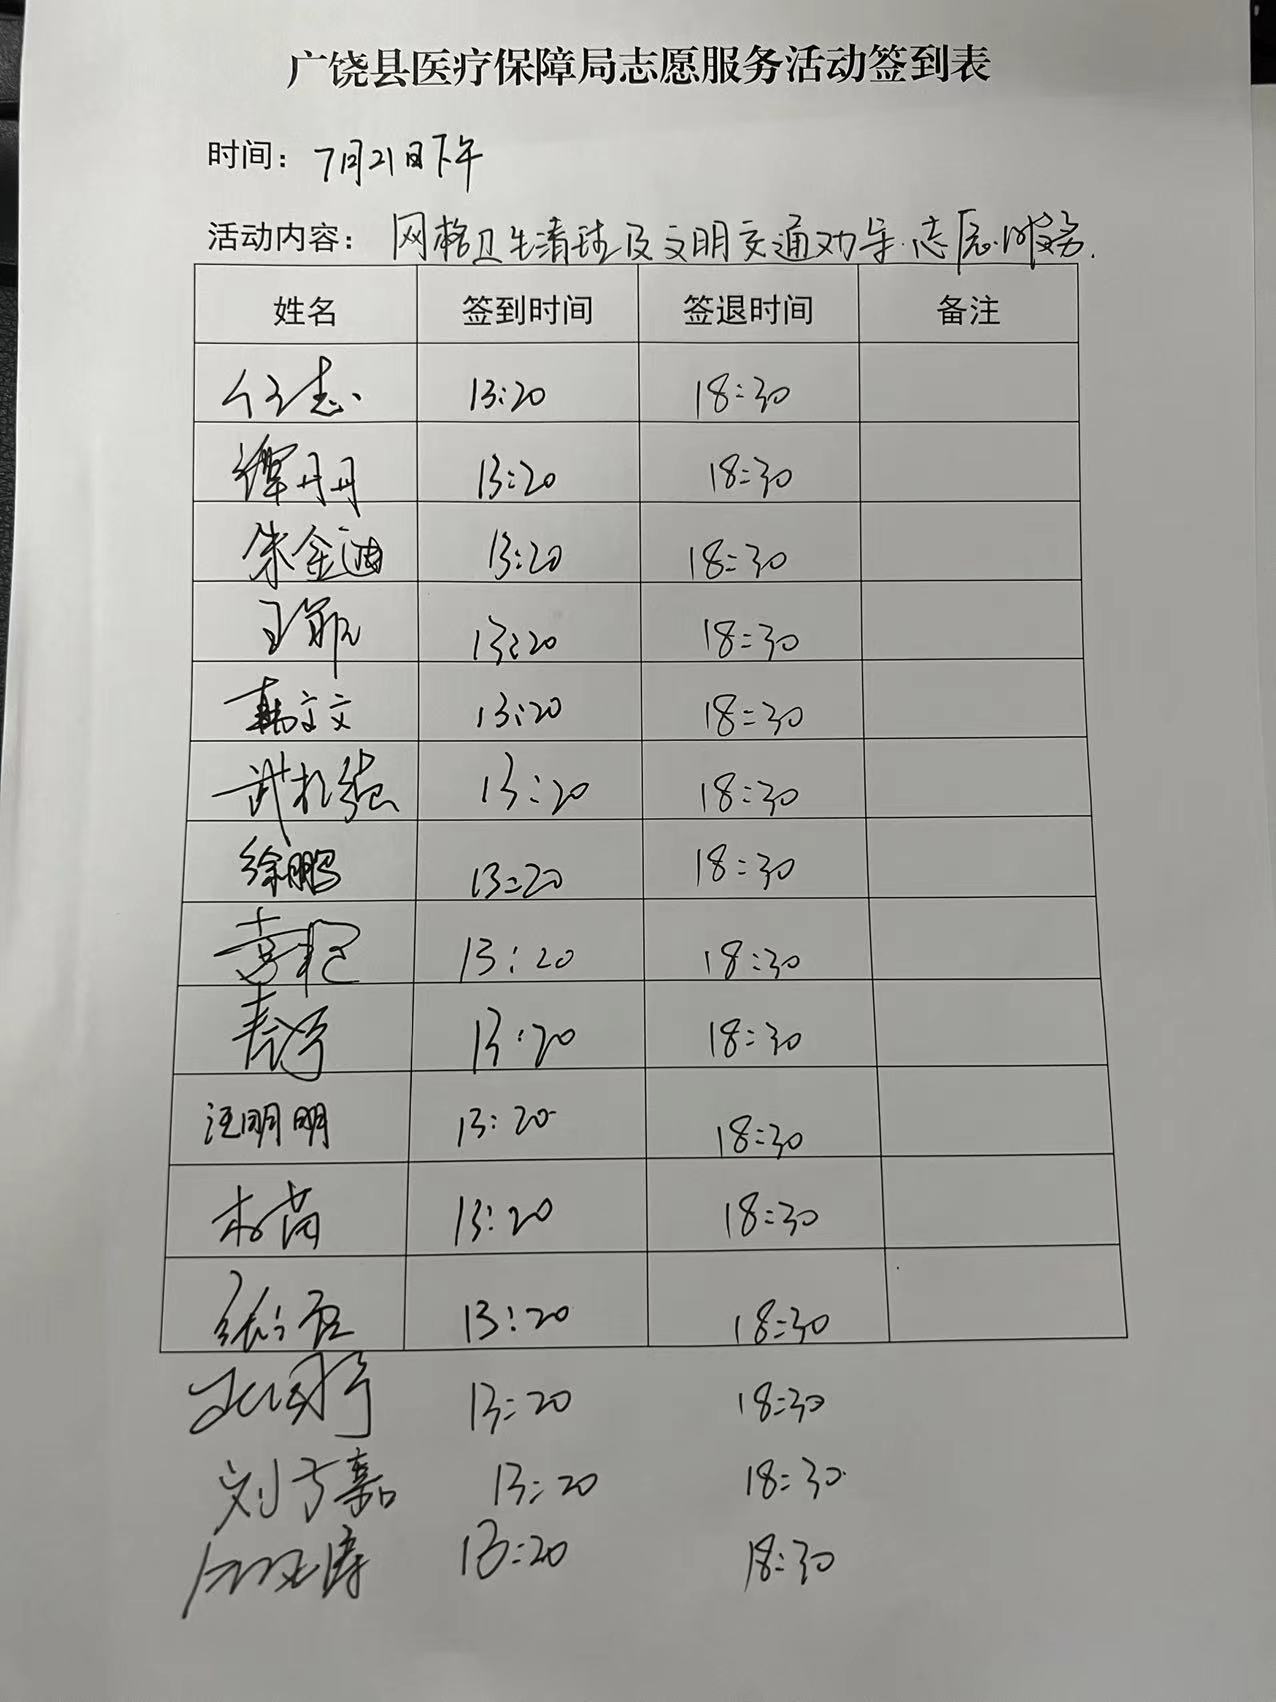 广饶县医疗保障局志愿服务活动签到表
时间：7月21日下午
活动内容：网格卫生清理及文明交通劝导志愿服务.
姓名 签到时间 签退时间 备注
任志 13:20 18:30
谭丹丹 13:20 18:30
朱金迪 13:20 18:30
王 13:20 18:30
韩文文 13:20 18:30
武 13:20 18:30
徐鹏 13:20 18:30
13:20 18:30
13:20 18:30
汪明明 13:20 18:30
13:20 18:30
张 13:20 18:30
13:20 18:30
刘方嘉 13:20 18:30
涛 13:20 18:30